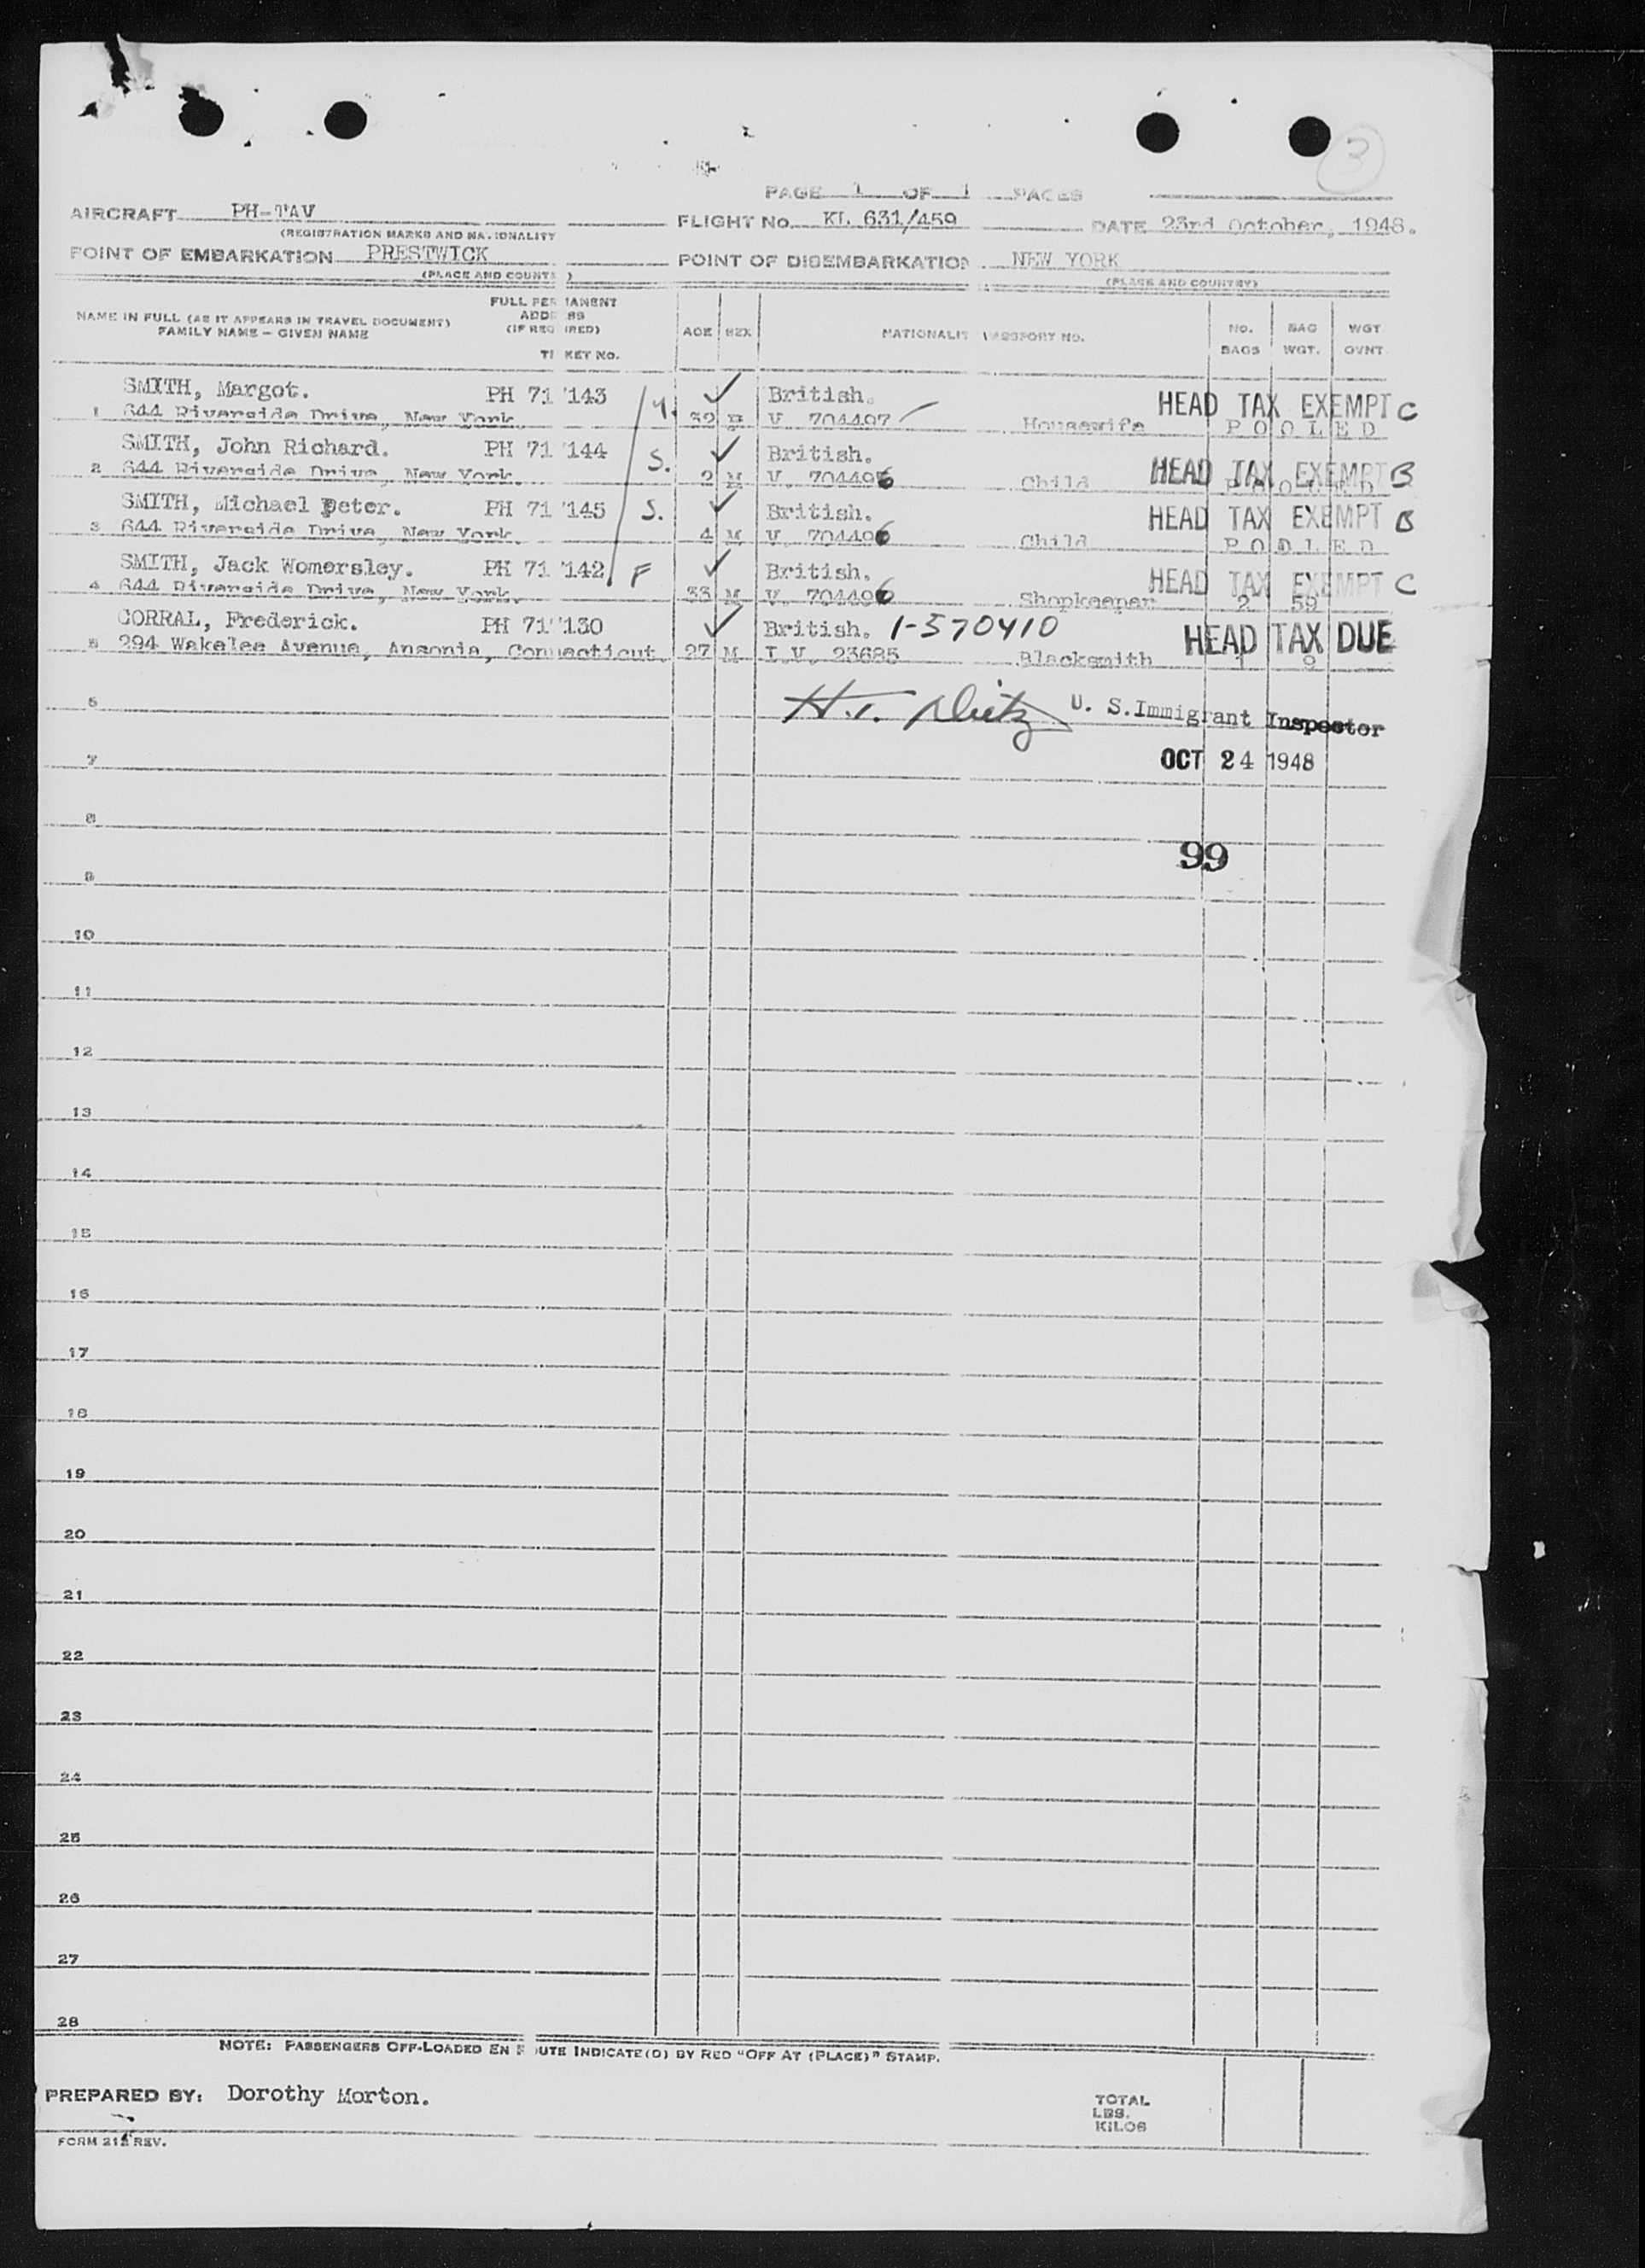 3
PAGE 1 OF 1 PAGES
AIRCRAFT PH-TAV FLIGHT No. KL 631/459 DATE 23rd October, 1948.
(REGISTRATION MARKS AND NATIONALITY
POINT OF EMBARKATION PRESTWICK POINT OF DISEMBARKATION NEW YORK
(PLACE AND COUNTRY) (PLACE AND COUNTRY)
NAME IN FULL (AS IT APPEARS IN TRAVEL DOCUMENT)
FAMILY NAME - GIVEN NAME
FULL PERMANENT
ADDRESS
(IF REQUIRED)
TICKET NO.
AGE SEX NATIONALITY PASSPORT NO. NO. BAGS BAG WGT. WGT OVNT
SMITH, Margot. PH 71 143 British. HEAD TAX EXEMPT C
1 644 Riverside Drive, New York. 32 F V. 704497 Housewife POOLED
SMITH, John Richard. PH 71 144 S. British. HEAD TAX EXEMPT B
2 644 Riverside Drive, New York. 2 M V. 704496 Child POOLED
SMITH, Michael Peter. PH 71 145 S. British. HEAD TAX EXEMPT B
3 644 Riverside Drive, New York. 4 M V. 704496 Child POOLED
SMITH, Jack Womersley. PH 71 142 F British. HEAD TAX EXEMPT C
4 644 Riverside Drive, New York. 33 M V. 704496 Shopkeeper 2 59
CORRAL, Frederick. PH 71 130 British. 1-370410 HEAD TAX DUE
5 294 Wakelee Avenue, Ansonia, Connecticut. 27 M I.V. 23685 Blacksmith 1 9
6 H.T. Dietz U. S. Immigrant Inspector
7 OCT 24 1948
8
99
9
10
11
12
13
14
15
16
17
18
19
20
21
22
23
24
25
26
27
28
NOTE: PASSENGERS OFF-LOADED EN ROUTE INDICATE(D) BY RED "OFF AT (PLACE)" STAMP.
PREPARED BY: Dorothy Morton.
TOTAL
LBS.
KILOS
FORM 212 REV.